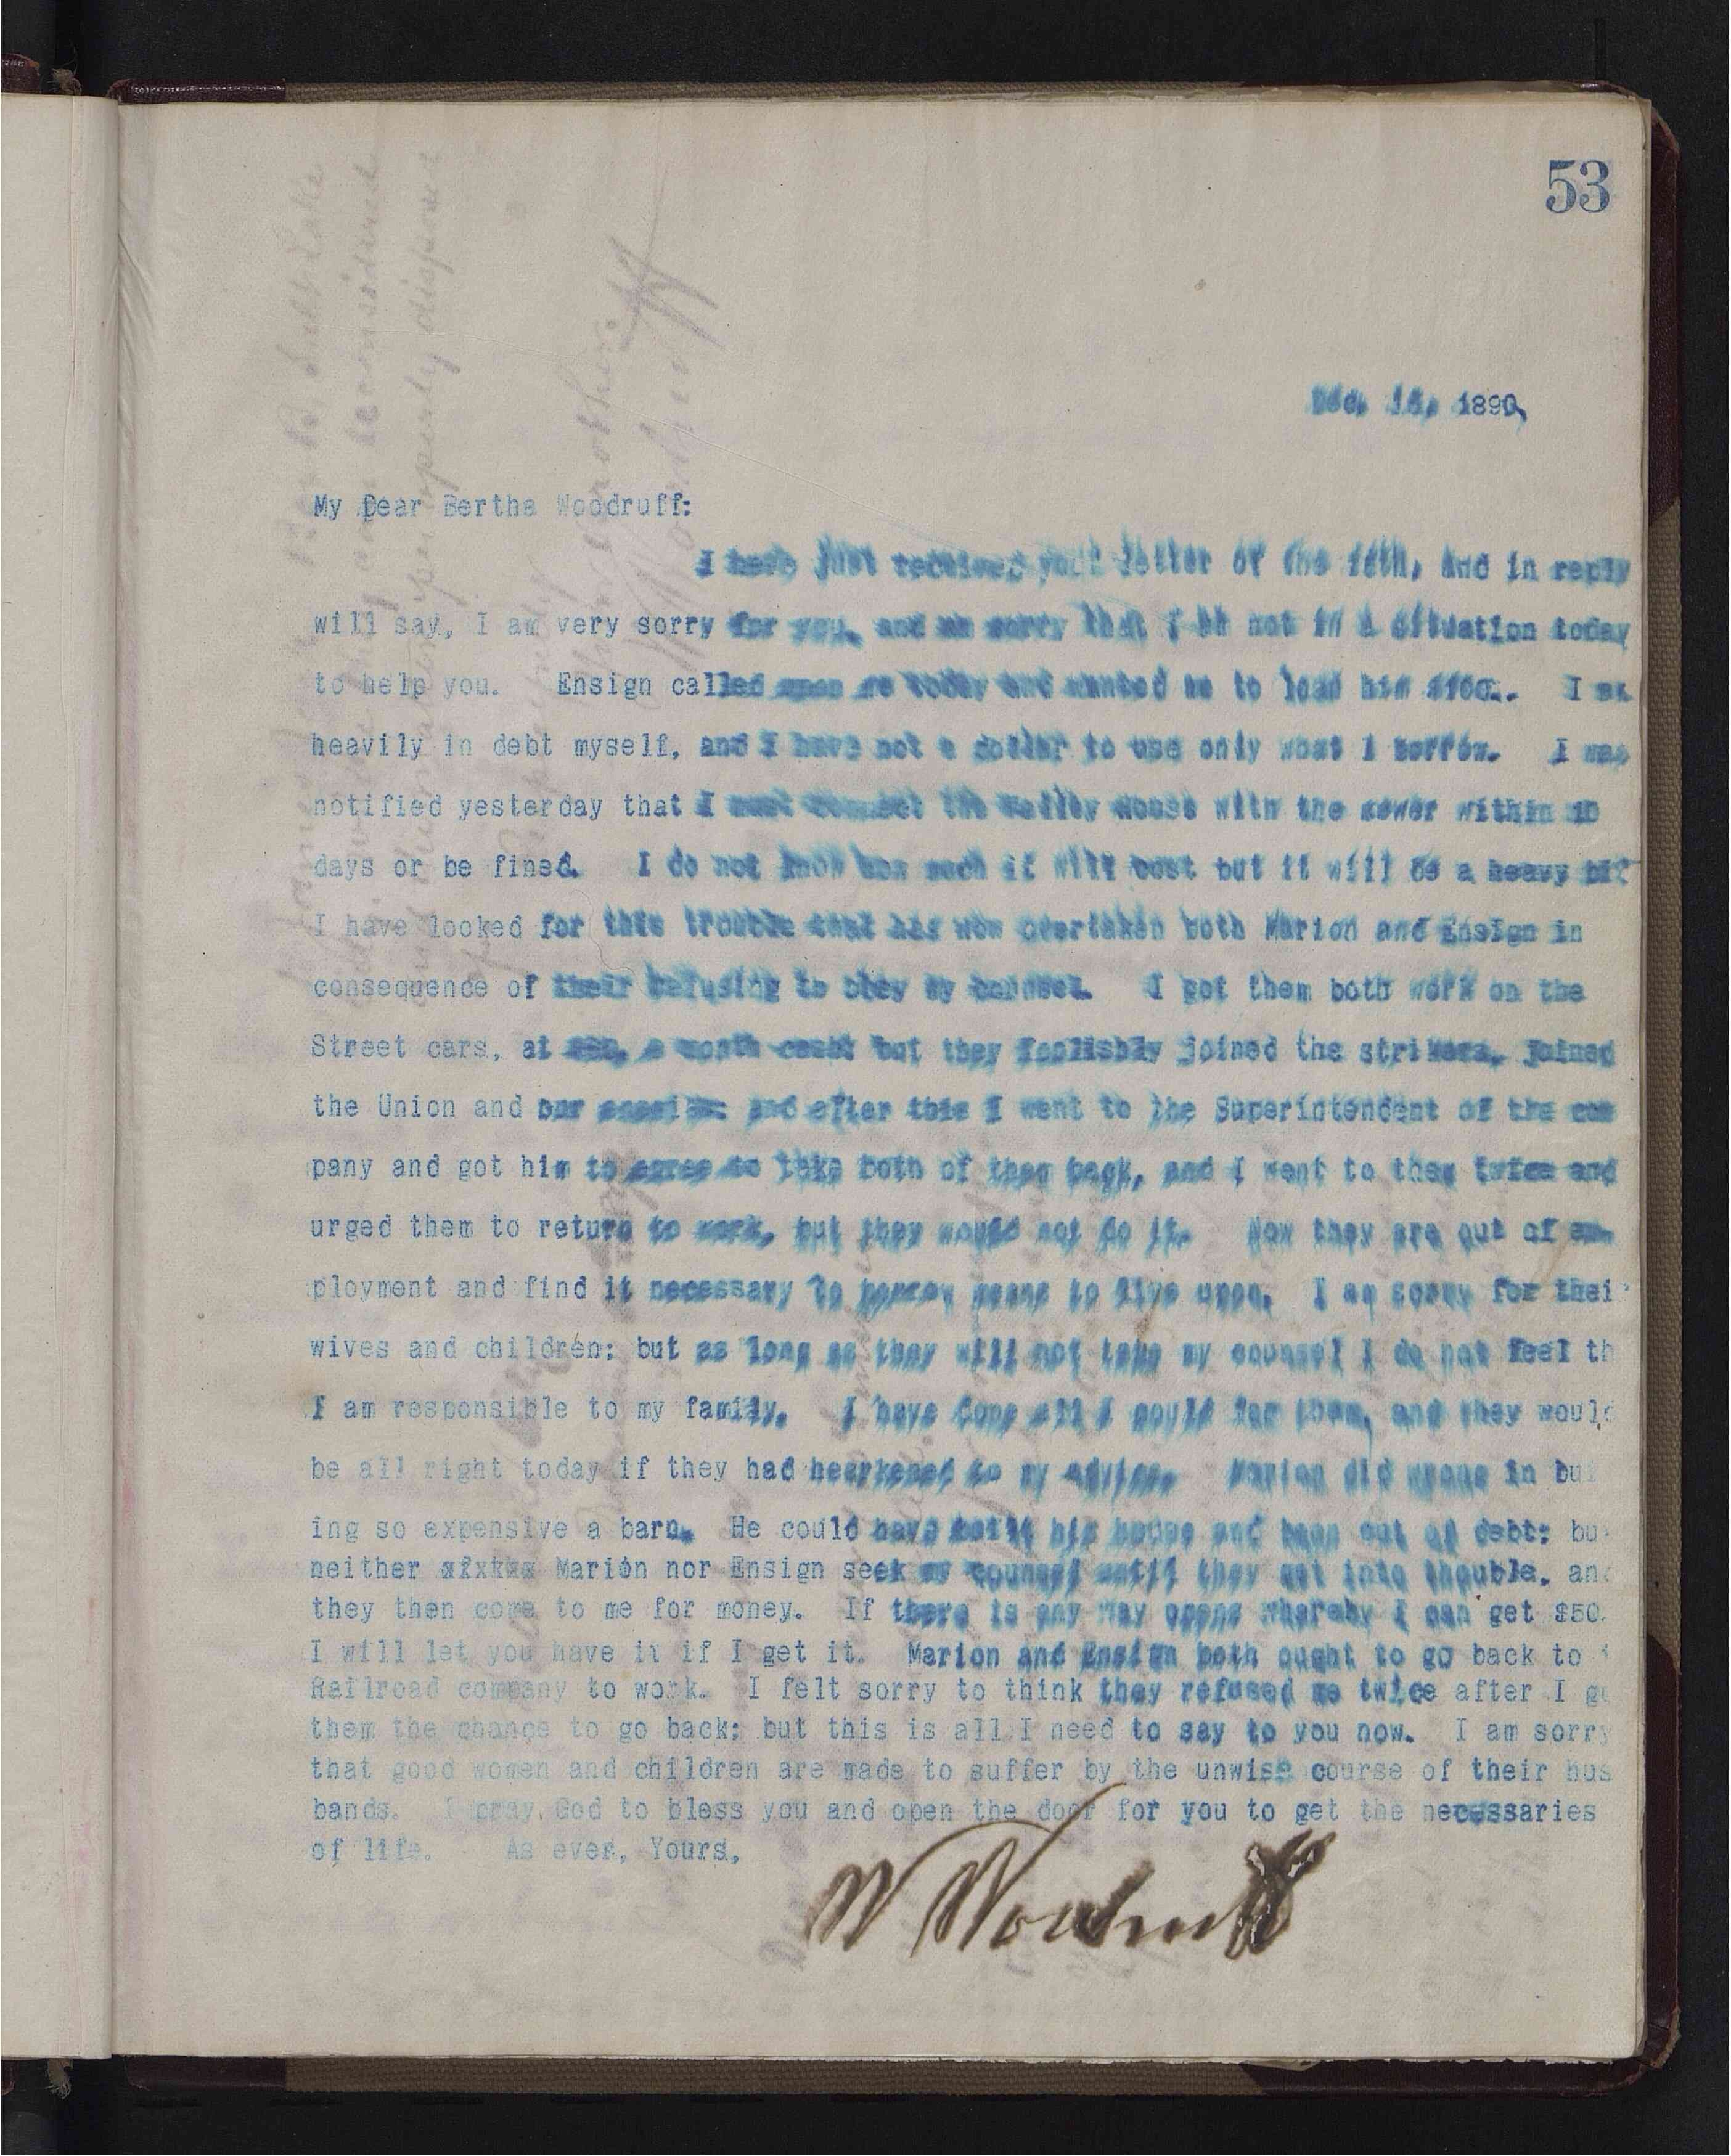 53
1890,
My Dear Bertha Woodruff:
I have just received your letter of the and in reply
will say, I am very sorry for you, and am sorry that I am not in a situation today
to help you. Ensign called upon me today and wanted me to loan him $100.. I am
heavily in debt myself, and I have not a dollar to use only what I borrow. I was
notified yesterday that I must connect the Valley House with the sewer within 10
days or be fined. I do not know how much it will cost but it will be a heavy
I have looked for this trouble that has now overtaken both Marion and Ensign in
consequence of their refusing to obey my counsel. I got them both work on the
Street cars, at a month but they foolishly joined the strikers, joined
the Union and our enemies and after this I went to the Superintendent of the com
pany and got him to agree to take both of them back, and I went to them twice and
urged them to return to work, but they would not do it. Now they are out of em-
ployment and find it necessary to borrow means to live upon. I am sorry for thei
wives and children; but as long as they will not take my counsel I do not feel th
I am responsible to my family. I have done all I could for them, and they would
be all right today if they had hearkened to my advice. Marion did wrong in bu
ing so expensive a barn. He could have built his house and been out of debt; bu
neither Marion nor Ensign seek my counsel until they get into trouble, and
they then come to me for money. If there is any way opens whereby I can get $50.
I will let you have it if I get it. Marion and Ensign both ought to go back to
Railroad company to work. I felt sorry to think they refused me twice after I g
them the chance to go back; but this is all I need to say to you now. I am sorry
that good women and children are made to suffer by the unwise course of their hus
bands. I pray God to bless you and open the door for you to get the necessaries
of life. As ever, Yours,
W Woodruff